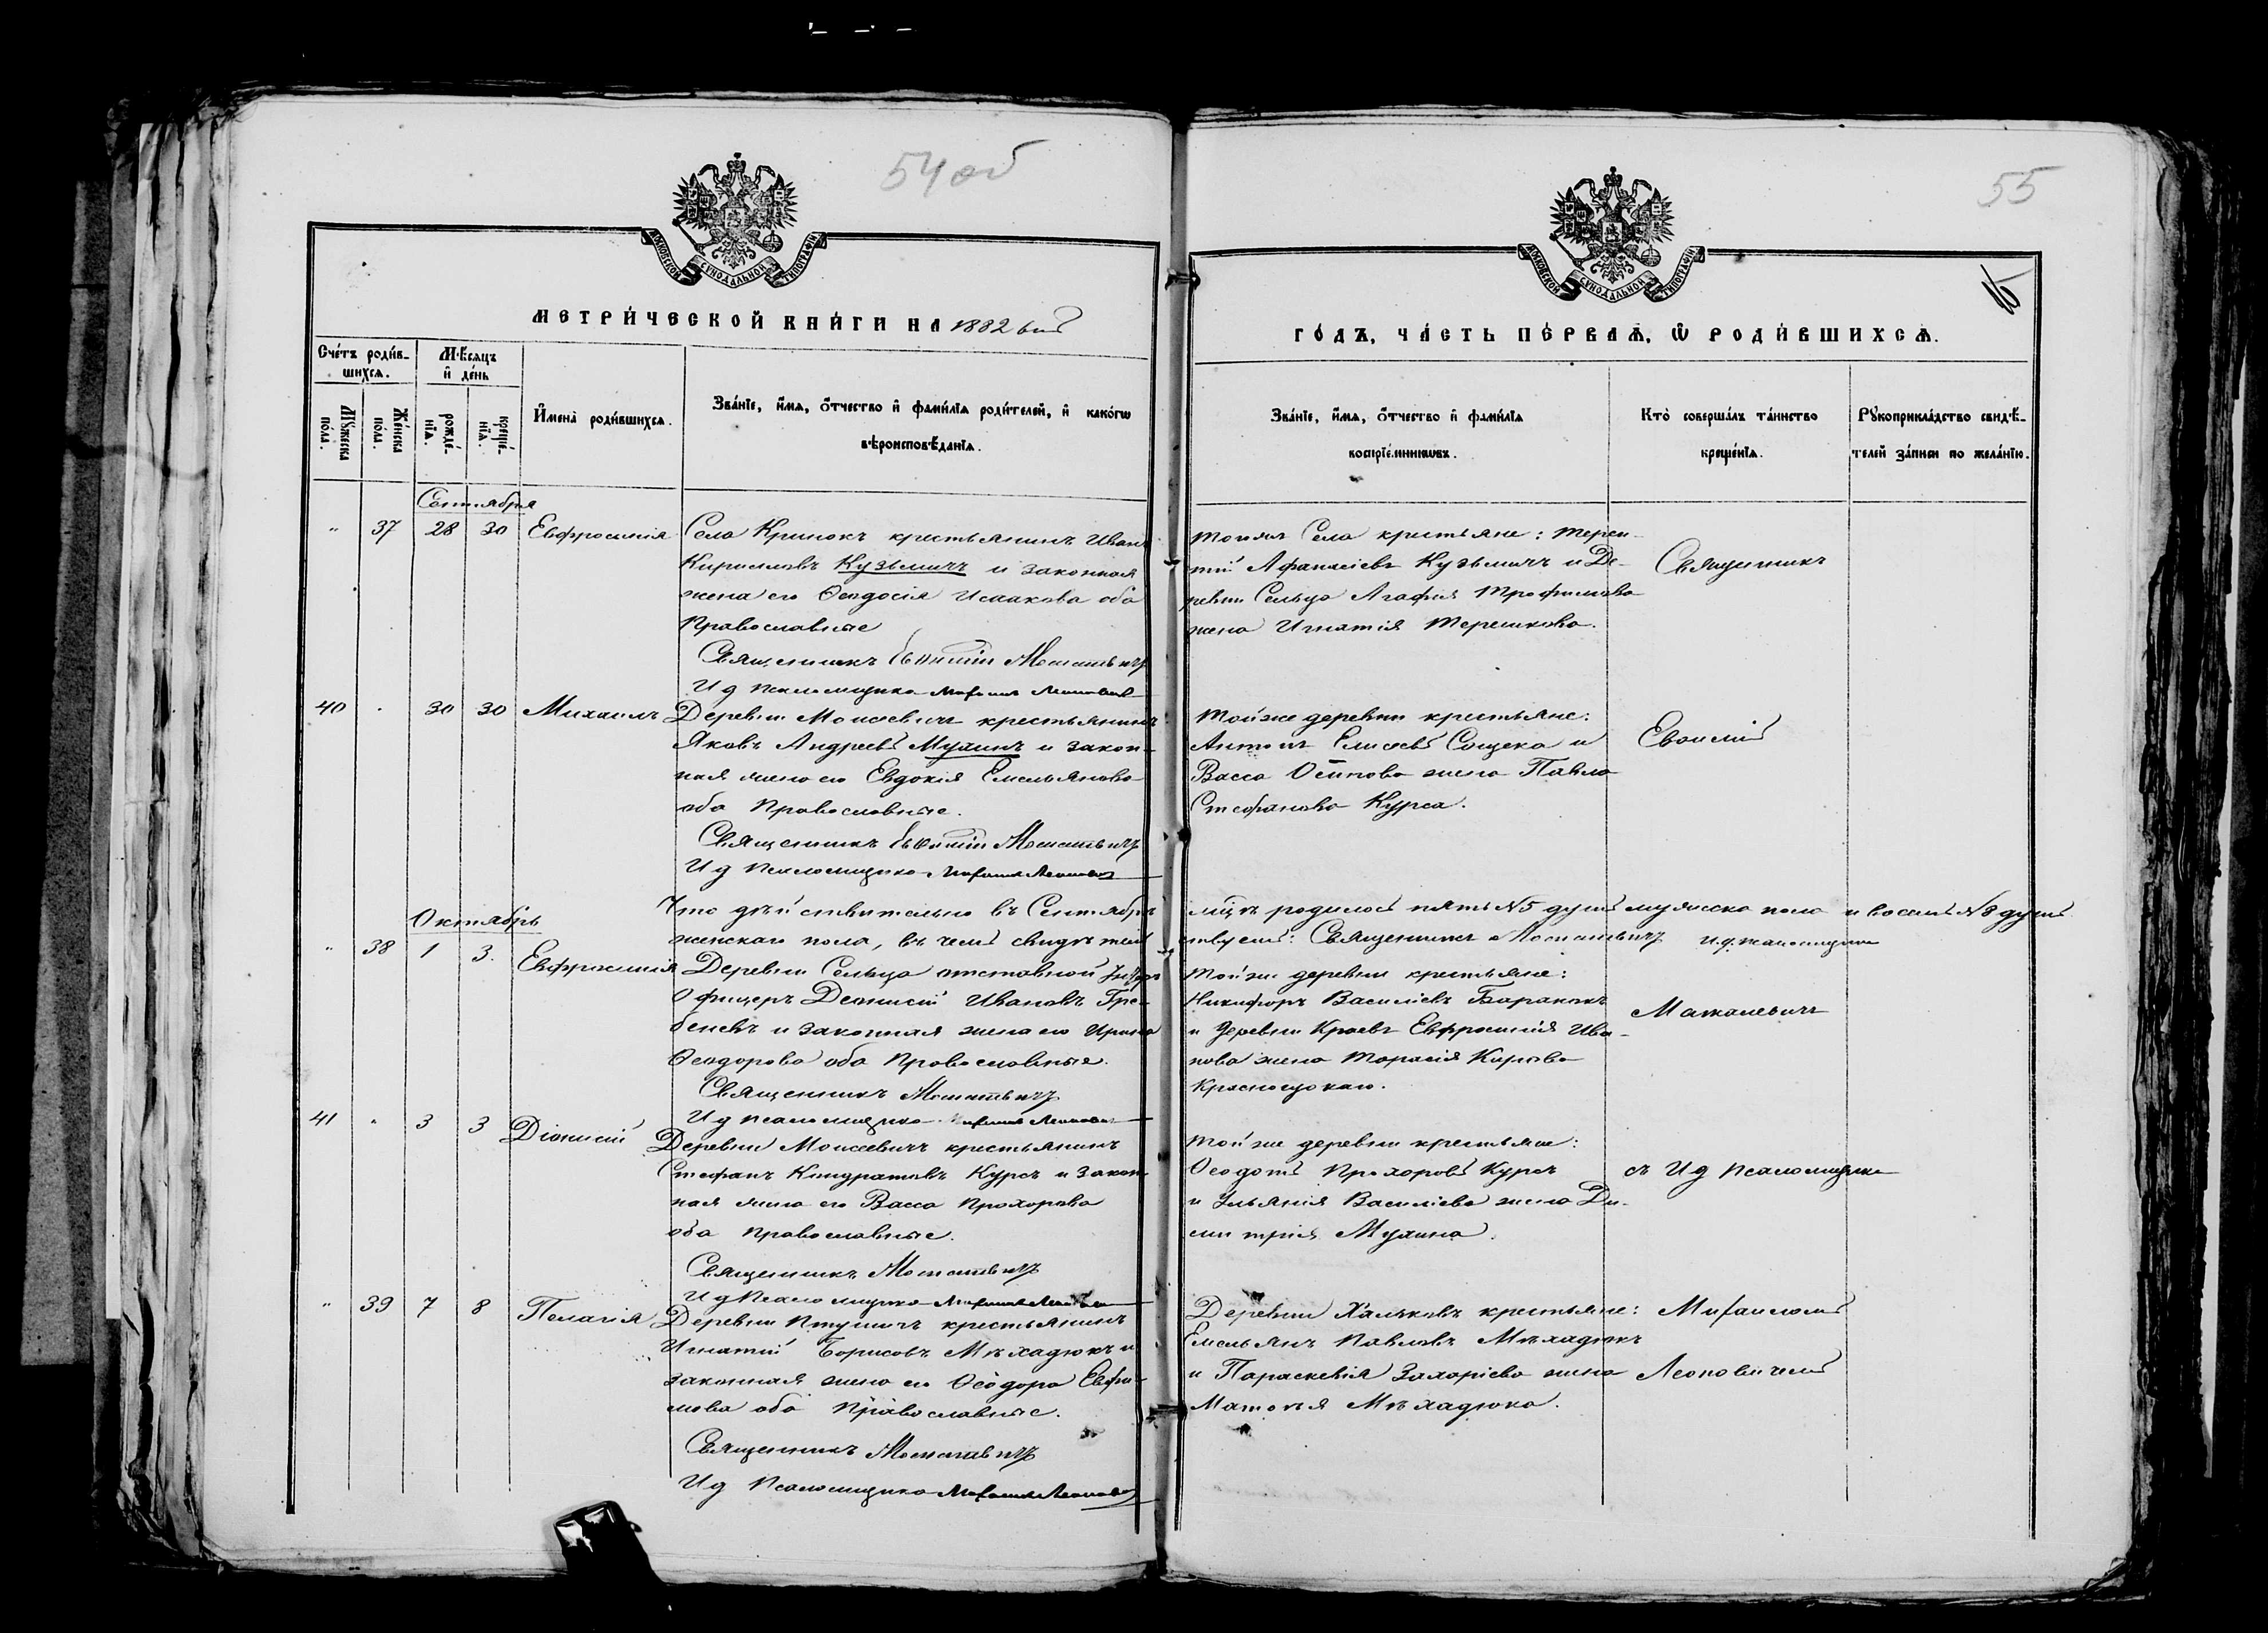 54 об
55
МОСКОВСКОЙ СѴНОДАЛЬНОЙ ТИПОГРАФІИ
МОСКОВСКОЙ СѴНОДАЛЬНОЙ ТИПОГРАФІИ
МЕТРИ́ЧЕСКОЙ КНИ́ГИ НА 1882 ый
ГО́ДЪ, ЧА́СТЬ ПЕ́РВАѦ, Ѡ҆ РОДИ́ВШИХСѦ.
Сче́тъ роди́в-
шихсѧ.
Мѣ́сѧцъ
и҆ де́нь
Мꙋ́жеска по́ла.
Же́нска по́ла.
рожде́-
нїѧ.
креще́-
нїѧ.
И҆мена̀ роди́вшихсѧ.
Зва́нїе, и҆́мѧ, ѻ҆́тчество и҆ фами́лїѧ роди́телей, и҆ како́гѡ
вѣроисповѣ́данїѧ.
Зва́нїе, и҆́мѧ, ѻ҆́тчество и҆ фами́лїѧ
воспрїе́мникѡвъ.
Кто̀ соверша́лъ та́инство
креще́нїѧ.
Рꙋкоприкла́дство свидѣ́-
телей за́писи по жела́нїю.
Сентября
" 37 28 30 Евфросинія
Села Кринокъ крестьянинъ Иванъ
Кирилловъ Кузьмичъ и законная
жена его Ѳеодосія Исаакова оба
Православные
Священникъ Евѳимій Маткевичъ
И д Псаломщика Михаилъ Леоновичъ
тогожъ Села крестьяне: Терен-
тій Афанасіевъ Кузьмичъ и Де-
ревни Сельца Агафія Трофимова
жена Игнатія Терешкова.
Священникъ
40 " 30 30 Михаилъ
Деревни Моисеевичъ крестьянинъ
Яковъ Андреевъ Мухинъ и закон-
ная жена его Евдокія Емельянова
оба Православные.
Священникъ Евѳимій
И д Псаломщика Михаилъ Леоновичъ
Той же деревни крестьяне:
Антонъ Елисеевъ Сощека и
Васса Осипова жена Павла
Стефанова Курса.
Евѳимій
Октябрь
Что дѣйствительно въ Сентябрѣ
мѣсяцѣ родилось пять №5 душъ мужеска пола и восемь №8 душъ
женскаго пола, въ чемъ свидѣтель
ствуемъ: Священникъ и. д. псаломщика
" 38 1 3. Евфросинія
Деревни Сельца отставной Унтеръ
Офицеръ Діонисій Ивановъ Гре-
беневъ и законная жена его Ирина
Ѳеодорова оба Православные.
Священникъ
И д Псаломщика Михаилъ Леоновичъ
Той же деревни крестьяне:
Никифоръ Василіевъ Баранокъ
и деревни Краевъ Евфросинія Ива-
нова жена Тарасія Карпова
Красноцкаго.
41 " 3 3 Діонисій
Деревни Моисеевичъ крестьянинъ
Стефанъ Кондратовъ Курсъ и закон-
ная жена его Васса Прохорова
оба Православные.
Священникъ
И д Псаломщика Михаилъ Леоновичъ
Той же деревни крестьяне:
Ѳеодотъ Прохоровъ Курсъ
и Ульянія Василіева жена Ди-
митрія Мухина.
съ И д Псаломщика
" 39 7 8 Пелагія
Деревни Птушичъ крестьянинъ
Игнатій Борисовъ Мѣхадюкъ и
законная жена его Ѳеодора Евфи-
мова оба Православные.
Священникъ
И д Псаломщика Михаилъ Леоновичъ
Деревни Хальковъ крестьяне:
Емельянъ Павловъ Мѣхадюкъ
и Параскевія Захаріева жена
Матѳея Мѣхадюка.
Михаиломъ
Леоновичемъ